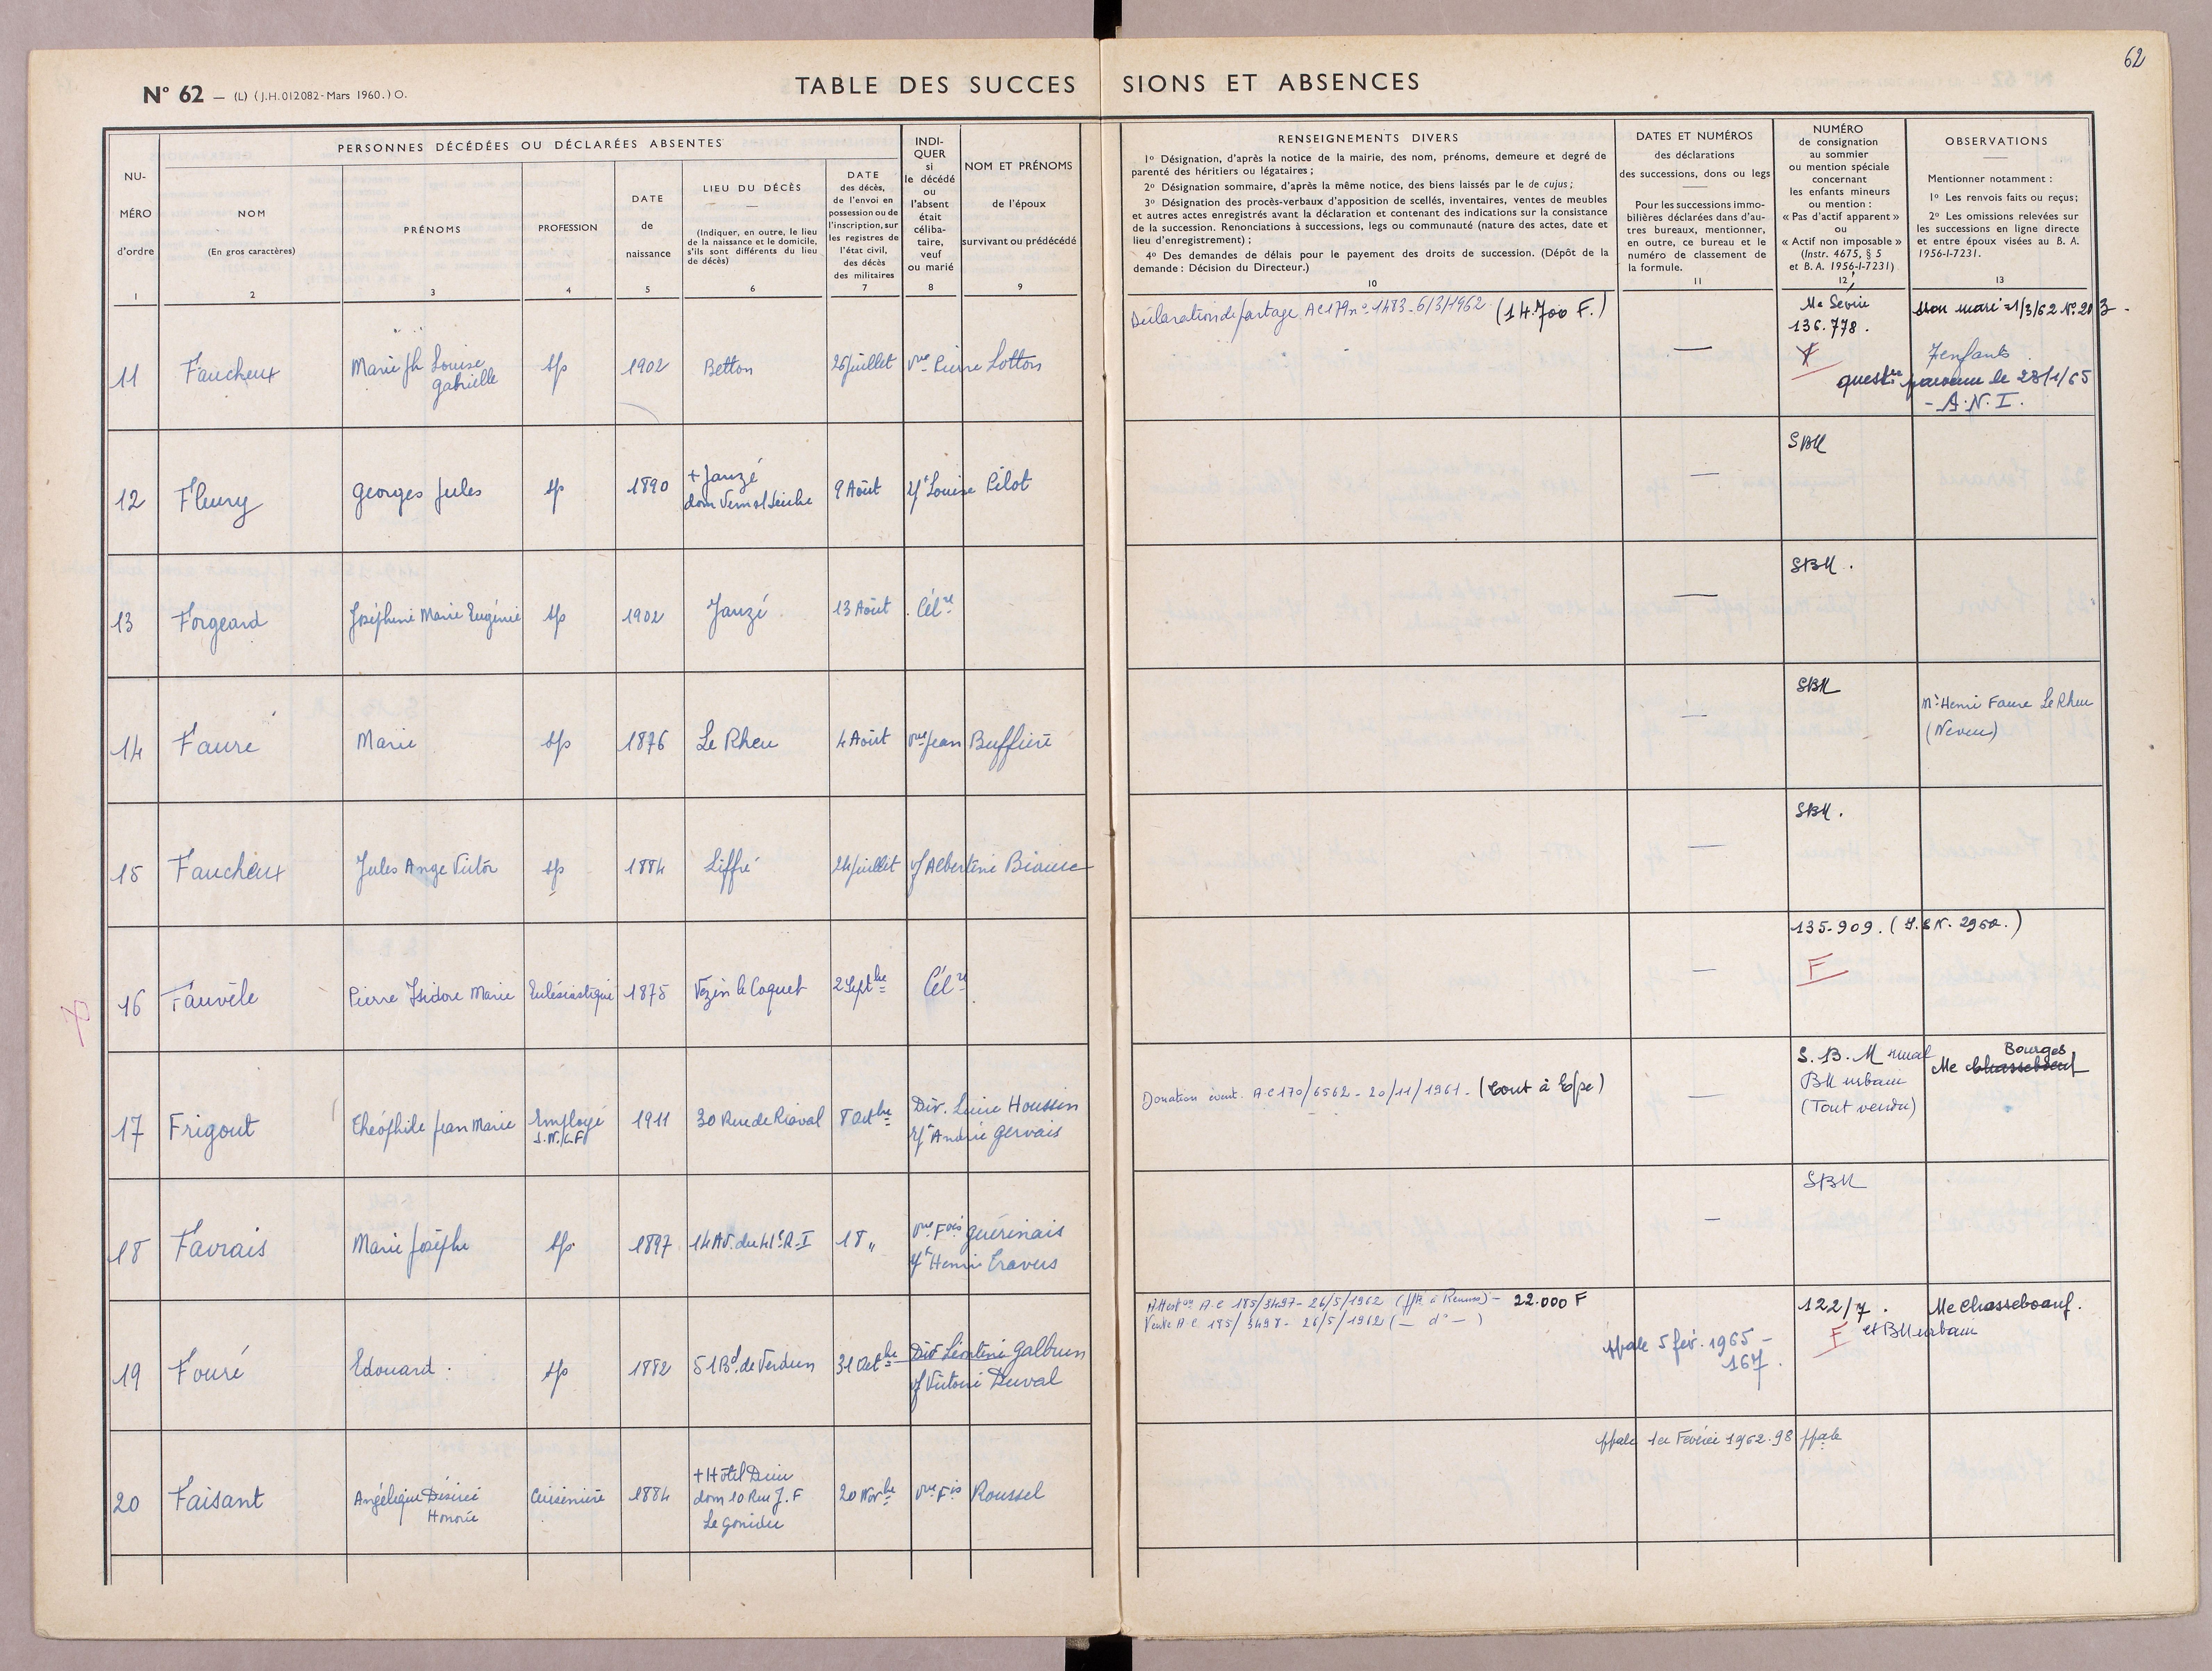 62
N° 62 — (L) (J.H. 012082 - Mars 1960.) O.
TABLE DES SUCCESSIONS ET ABSENCES
PERSONNES DÉCÉDÉES OU DÉCLARÉES ABSENTES
NU-
MÉRO
d'ordre
1
NOM
(En gros caractères)
2
PRÉNOMS
3
PROFESSION
4
DATE
de
naissance
5
LIEU DU DÉCÈS
—
(Indiquer, en outre, le lieu
de la naissance et le domicile,
s'ils sont différents du lieu
de décès)
6
DATE
des décès,
de l'envoi en
possession ou de
l'inscription, sur
les registres de
l'état civil,
des décès
des militaires
7
INDI-
QUER
si
le décédé
ou
l'absent
était
céliba-
taire,
veuf
ou marié
8
NOM ET PRÉNOMS
de l'époux
survivant ou prédécédé
9
RENSEIGNEMENTS DIVERS
1° Désignation, d'après la notice de la mairie, des nom, prénoms, demeure et degré de
parenté des héritiers ou légataires ;
2° Désignation sommaire, d'après la même notice, des biens laissés par le de cujus ;
3° Désignation des procès-verbaux d'apposition de scellés, inventaires, ventes de meubles
et autres actes enregistrés avant la déclaration et contenant des indications sur la consistance
de la succession. Renonciations à successions, legs ou communauté (nature des actes, date et
lieu d'enregistrement) ;
4° Des demandes de délais pour le payement des droits de succession. (Dépôt de la
demande : Décision du Directeur.)
10
DATES ET NUMÉROS
des déclarations
des successions, dons ou legs
—
Pour les successions immo-
bilières déclarées dans d'au-
tres bureaux, mentionner,
en outre, ce bureau et le
numéro de classement de
la formule.
11
NUMÉRO
de consignation
au sommier
ou mention spéciale
concernant
les enfants mineurs
ou mention :
« Pas d'actif apparent »
ou
« Actif non imposable »
(Instr. 4675, § 5
et B. A. 1956-I-7231)
12
OBSERVATIONS
—
Mentionner notamment :
1° Les renvois faits ou reçus ;
2° Les omissions relevées sur
les successions en ligne directe
et entre époux visées au B. A.
1956-I-7231.
13
11 Faucheux Marie Jh Louise Gabrielle sp 1902 Betton 26 juillet vve Pierre Lottois
Déclaration de partage A C 179 n° 1483 - 6/3/1962 (14.700 F.) —
136.778.
1/3/62 N° 20 3 .
7 enfants
le 28/1/65
- A.N.I.
12 Fleury Georges Jules sp 1890 + Janzé
dom Vern s/ Seiche 9 Août Louise Pilot — SBM
13 Forgeard Joséphine Marie Eugénie sp 1902 Janzé 13 Août Cél re — SBM .
14 Faure Marie sp 1876 Le Rheu 4 Août vve Jean Buffière — SBM
Mr Henri Faure Le Rheu
(Neveu)
15 Faucheux Jules Ange Victor sp 1884 Liffré 24 juillet vf Albertine — SBM .
16 Fauvèle Pierre Isidore Marie Ecclésiastique 1875 Vezin le Coquet 2 Septbre Cél re — 135.909.
F
17 Frigout Théophile Jean Marie Employé
S.N.C.F 1911 30 Rue de Riaval 8 Octbre Div. Houssin
Gervais
Donation évent. A.C 170/6562 - 20/11/1961 - —
S. B. M rural
BM urbain
(Tout vendu)
Me Chasseboeuf Bourges
18 Favrais Marie Josèphe sp 1897 14 Av. du 41e R.I 18 " vve Fois Guérinais
Henri Travers — SBM
19 Fouré Edouard . sp 1882 51 Bd de Verdun 31 Octbre Div Léontine Galbrun
vf Victoire Duval
A C 185/3497 - 26/5/1962 - 22.000 F
Vente A C 185/3498 - 26/5/1962 ( — d° — )
5 fév. 1965 -
167 .
122/7 .
F et BM urbain
Me Chasseboeuf.
20 Faisant Angélique Désirée
Honorée Cuisinière 1884 + Hôtel Dieu
dom 10 Rue J. F
Le Gonidec 20 Novbre vve Fois Roussel
ppale 1er Février 1962 . 98 ppale